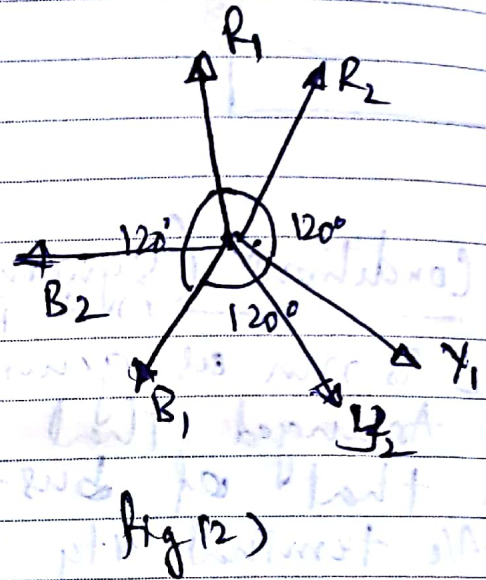 R1
R2
120°
120°
B2
120°
Y1
B1
Y2
fig (2)